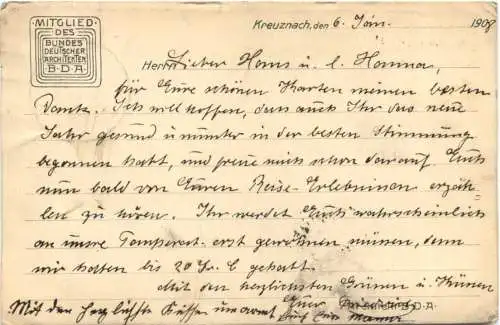 MITGLIED
DES
BUNDES
DEUTSCHER
ARCHITEKTEN
B·D·A
Kreuznach, den 6. Jan. 1908
Herrn Lieber Hans u. l. Hanna,
für Eure schönen Karten meinen besten
Dank. Ich will hoffen, dass auch Ihr das neue
Jahr gesund u. munter in der besten Stimmung
begonnen habt, und freue mich schon darauf Euch
nun bald von Euren Reise-Erlebnissen erzäh-
len zu hören. Ihr werdet Euch wahrscheinlich
an unsre Temperat. erst gewöhnen müssen, denn
wir hatten bis 20 Gr. C gehabt.
Mit den herzlichsten Grüssen u. Küssen
Euer B.D.A.
Mit den herzlichsten Küssen umarmt Euch Eure Mama